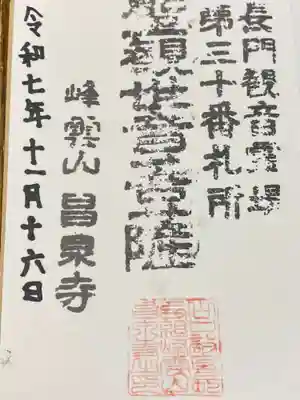 長門観音霊場
第三十番札所
聖観世音菩薩
峰雲山 昌泉寺
令和七年十一月十六日